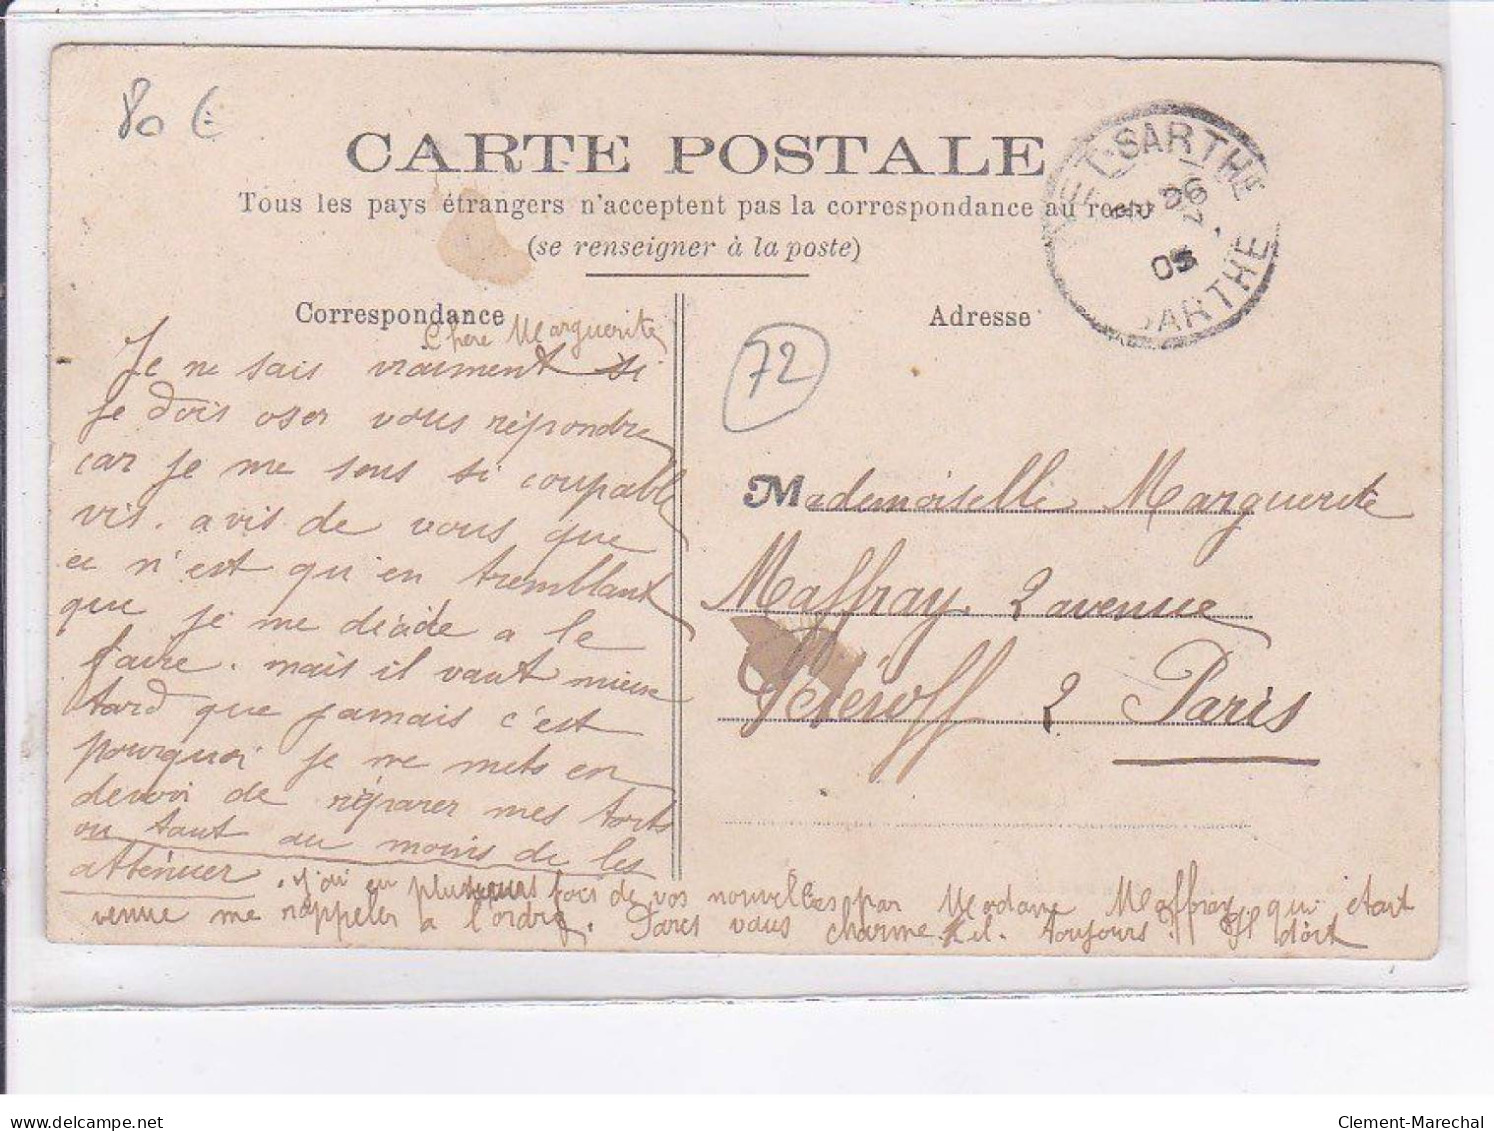 80 €
CARTE POSTALE
Tous les pays étrangers n'acceptent pas la correspondance au recto
(se renseigner à la poste)
SARTHE
05
SARTHE
Correspondance
Adresse
72
Chère Marguerite
Je ne sais vraiment si
je dois oser vous répondre
car je me sens si coupable
vis. avis de vous que
ce n'est qu'en tremblant
que je me décide a le
faire. mais il vaut mieux
tard que jamais c'est
pourquoi je me mets en
devoir de réparer mes torts
ou tout au moins de les
atténuer. j'ai eu plusieurs fois de vos nouvelles par Madame Maffray. qui était
venue me rappeler a l'ordre. Paris vous charme. t. il. toujours. Il doit
Mademoiselle Marguerite
Maffray. 2 avenue
2 Paris
Clement-Marechal
delcampe.net